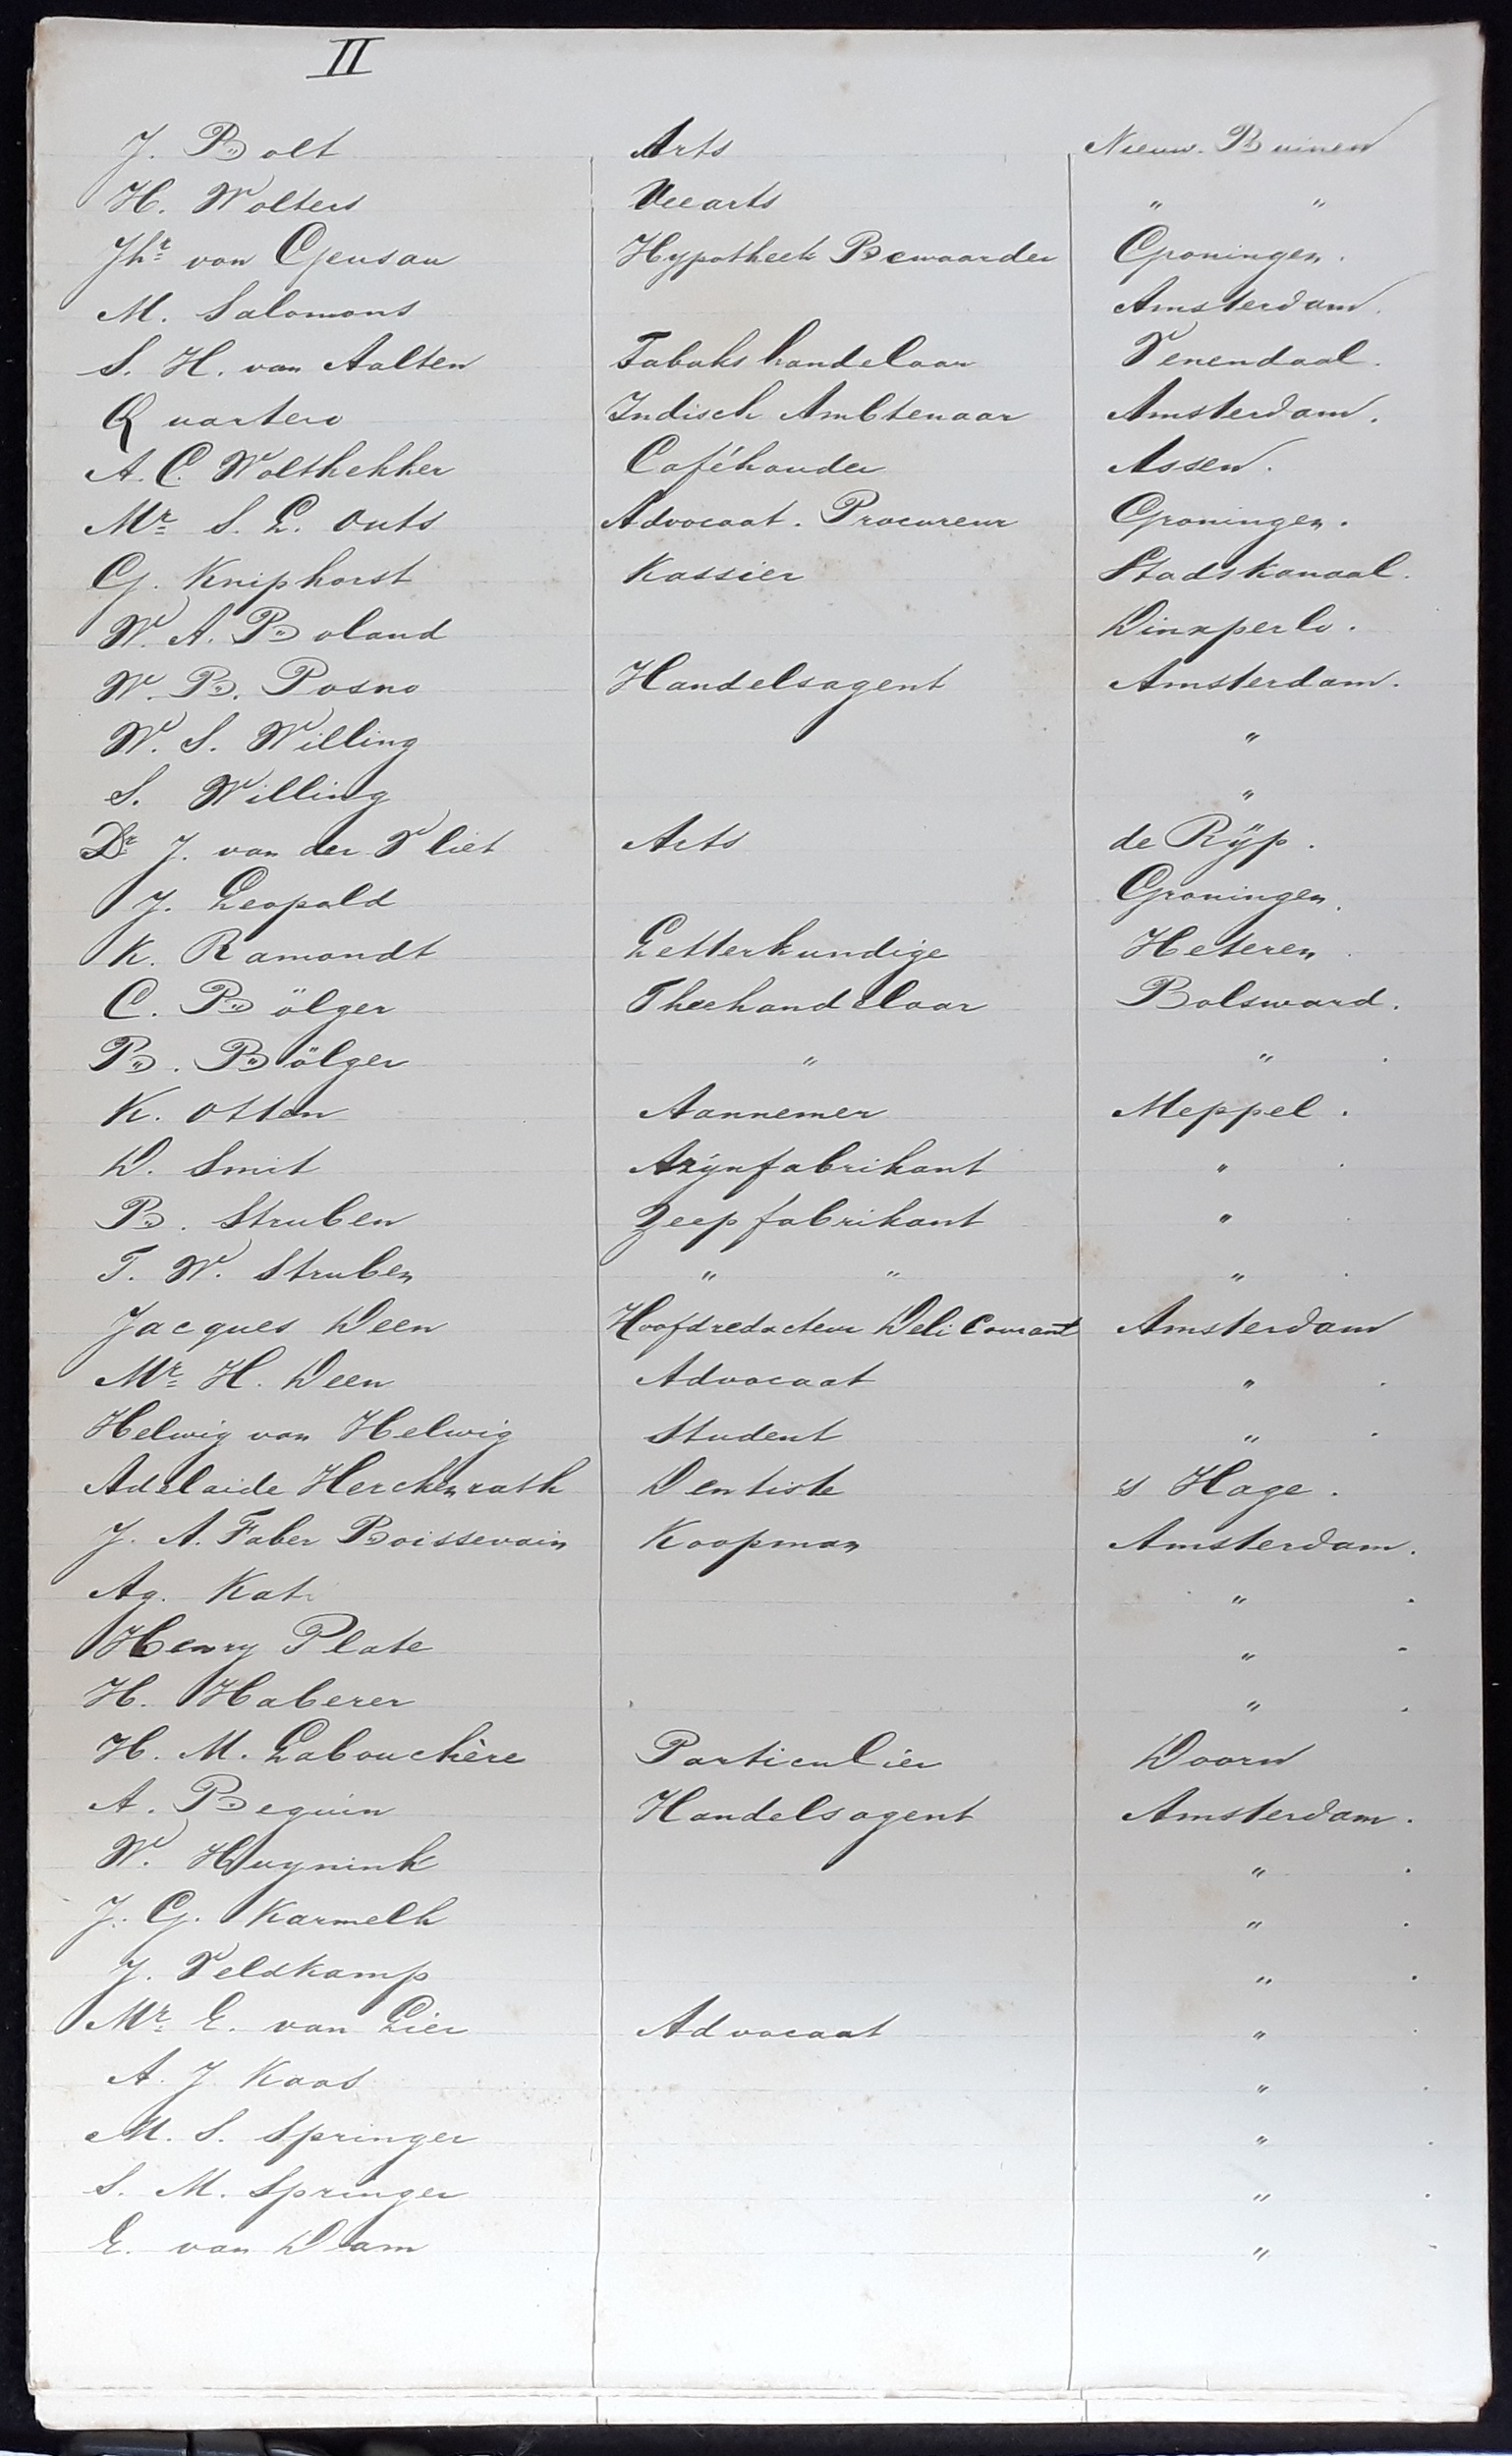 II
J. Bolt Arts Nieuw. Buinen
H. Wolters Veearts " "
Jhr van Geusau Hypotheek Bewaarder Groningen.
M. Salomons Amsterdam.
S. H. van Aalten Tabakshandelaar Venendaal.
Quartero Indisch Ambtenaar Amsterdam.
A. C. Wolthekker Caféhouder Assen.
Mr S. L. Outs Advocaat. Procureur Groningen.
G. Kniphorst Kassier Stadskanaal.
W. A. Boland Dinxperlo.
W. B. Posno Handelsagent Amsterdam.
W. S. Willing "
S. Willing "
Dr J. van der Vliet Arts de Rÿp.
J. Leopold Groningen.
K. Ramondt Letterkundige Heteren.
C. Bölger Theehandelaar Bolsward.
B. Bölger " "
K. Otten Aannemer Meppel.
D. Smit Azÿnfabrikant "
B. Struben Zeepfabrikant "
T. W. Struben " " "
Jacques Deen Hoofdredacteur Deli Courant Amsterdam
Mr H. Deen Advocaat "
Helwig van Helwig Student "
Adelaide Herckenrath Dentiste s Hage.
J. A. Faber Boissevain Koopman Amsterdam.
Ag. Kat. "
Henry Plate "
H. Haberer "
H. M. Labouchère Particulier Doorn
A. Beguin Handelsagent Amsterdam.
W. Huynink "
J. G. Karmelk "
J. Veldkamp "
Mr E. van Lier Advocaat "
A. J. Kaas "
M. S. Springer "
S. M. Springer "
E. van Dam "